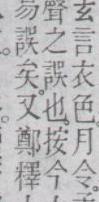 玄言衣色月令
聲之誤也按今
易誤矣又鄭釋